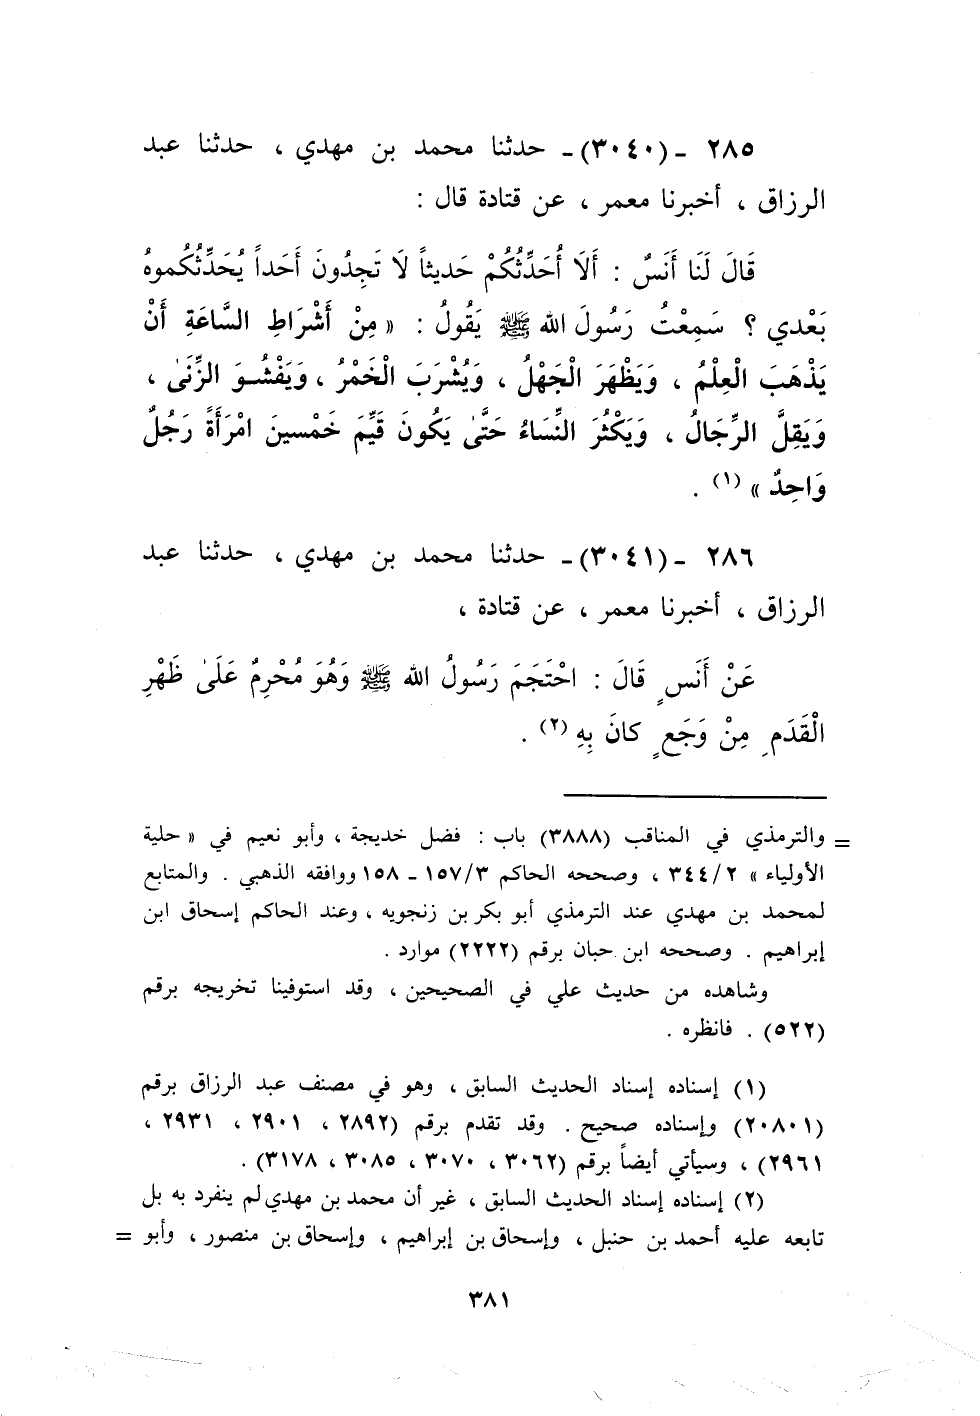 ٢٨٥ ـ (٣٠٤٠)ـ حدثنا محمد بن مهدي ، حدثنا عبد
الرزاق ، أخبرنا معمر ، عن قتادة قال :
قَالَ لَنَا أَنَسٌ : أَلَا أُحَدِّثُكُمْ حَديثاً لَا تَجِدُونَ أَحَداً يُحَدِّثُكُموهُ
بَعْدي ؟ سَمِعْتُ رَسُولَ الله ﷺ يَقُولُ : « مِنْ أَشْرَاطِ السَّاعَةِ أَنْ
يَذْهَبَ الْعِلْمُ ، وَيَظْهَرَ الْجَهْلُ ، وَيُشْرَبَ الْخَمْرُ ، وَيَفْشُوَ الزِّنَىٰ ،
وَيَقِلَّ الرِّجَالُ ، وَيَكْثُرَ النِّسَاءُ حَتَّىٰ يَكُونَ قَيِّمَ خَمْسينَ امْرَأَةً رَجُلٌ
وَاحِدٌ » (١) .
٢٨٦ ـ (٣٠٤١)ـ حدثنا محمد بن مهدي ، حدثنا عبد
الرزاق ، أخبرنا معمر ، عن قتادة ،
عَنْ أَنَسٍ قَالَ : احْتَجَمَ رَسُولُ الله ﷺ وَهُوَ مُحْرِمٌ عَلَىٰ ظَهْرِ
الْقَدَمِ مِنْ وَجَعٍ كانَ بِهِ (٢) .
= والترمذي في المناقب (٣٨٨٨) باب : فضل خديجة ، وأبو نعيم في « حلية
الأولياء » ٣٤٤/٢ ، وصححه الحاكم ١٥٧/٣ ـ ١٥٨ ووافقه الذهبي . والمتابع
لمحمد بن مهدي عند الترمذي أبو بكر بن زنجويه ، وعند الحاكم إسحاق ابن
إبراهيم . وصححه ابن حبان برقم (٢٢٢٢) موارد .
وشاهده من حديث علي في الصحيحين ، وقد استوفينا تخريجه برقم
(٥٢٢) . فانظره .
(١) إسناده إسناد الحديث السابق ، وهو في مصنف عبد الرزاق برقم
(٢٠٨٠١) وإسناده صحيح . وقد تقدم برقم (٢٨٩٢ ، ٢٩٠١ ، ٢٩٣١ ،
٢٩٦١) ، وسيأتي أيضاً برقم (٣٠٦٢ ، ٣٠٧٠ ، ٣٠٨٥ ، ٣١٧٨) .
(٢) إسناده إسناد الحديث السابق ، غير أن محمد بن مهدي لم ينفرد به بل
تابعه عليه أحمد بن حنبل ، وإسحاق بن إبراهيم ، وإسحاق بن منصور ، وأبو =
٣٨١